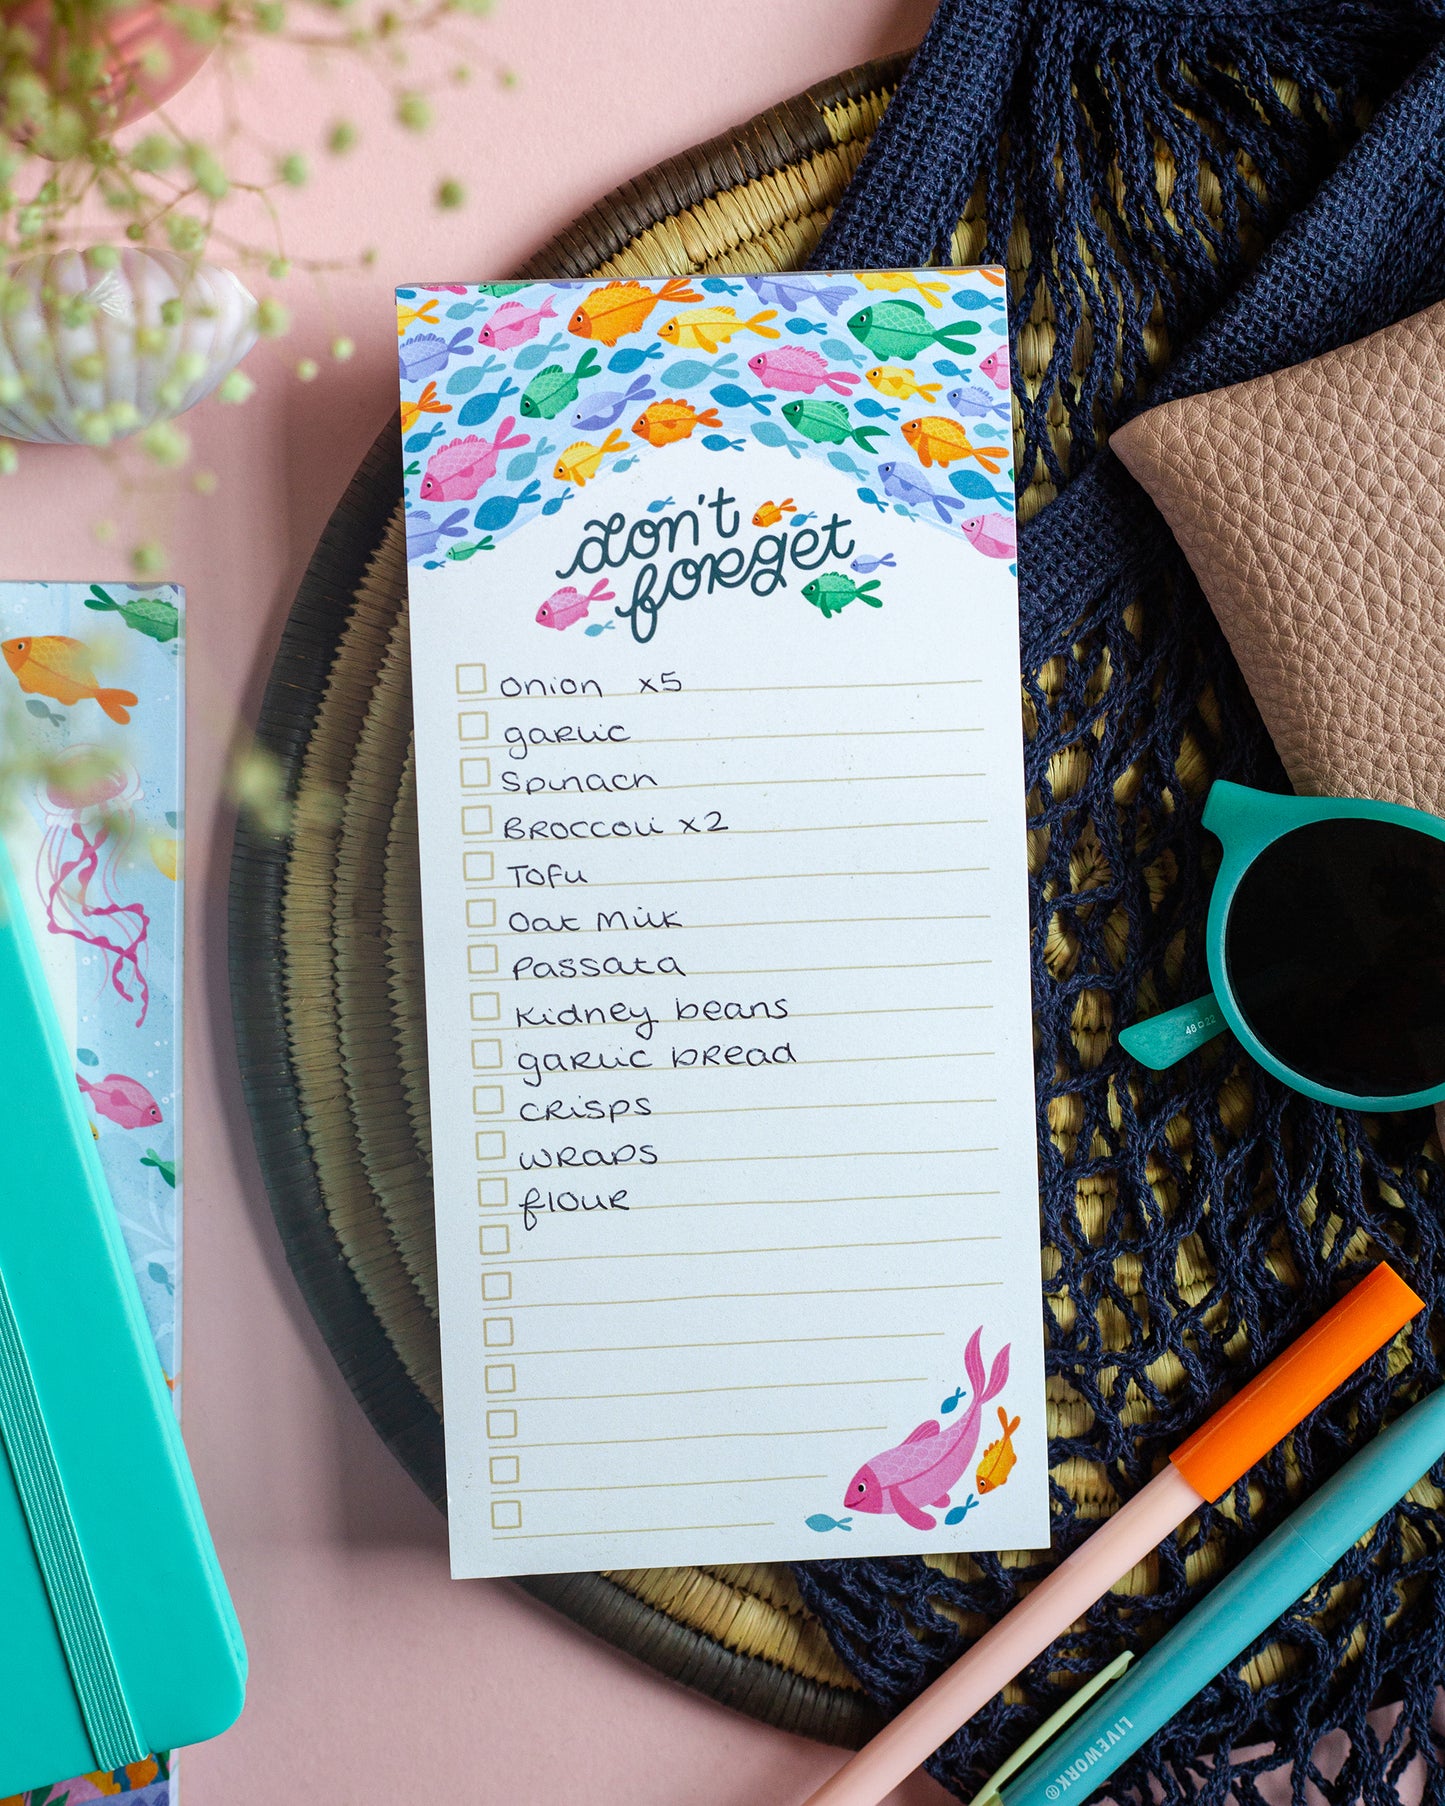 don't
forget
onion x5
garlic
spinach
Broccoli x2
Tofu
Oat Milk
passata
kidney beans
garlic bread
crisps
wraps
flour
48 22
LIVEWORK®